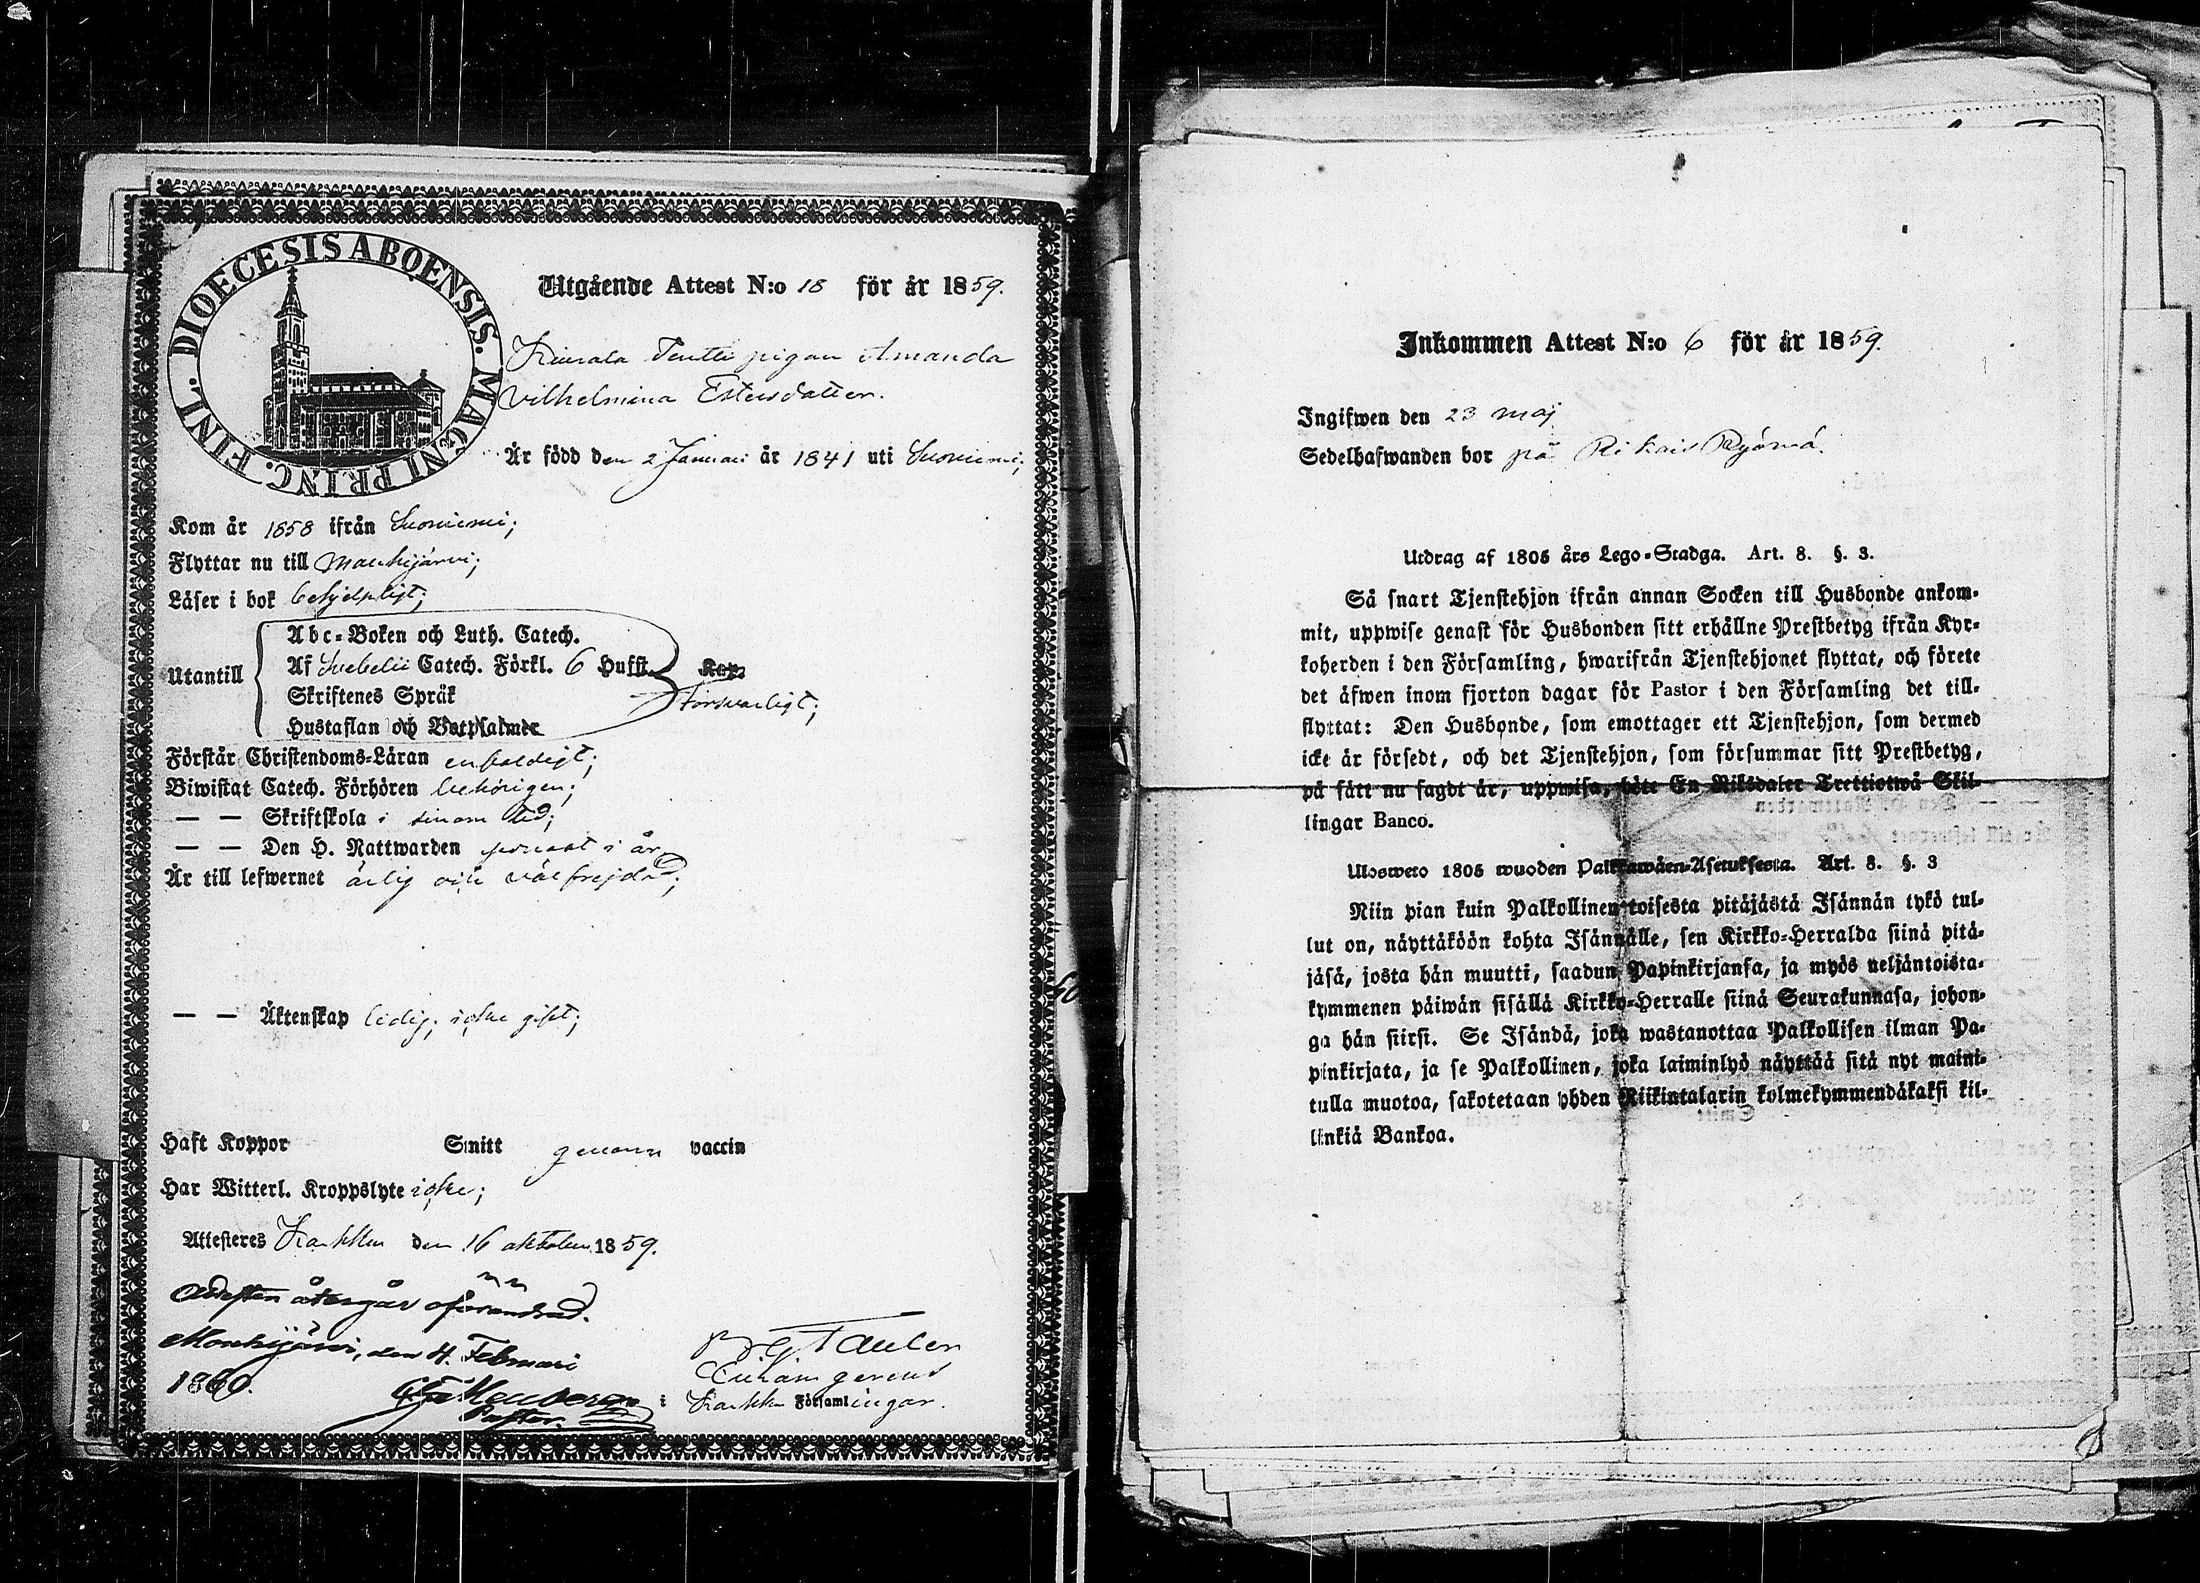 DIOECESIS ABOENSIS. MAGNI PRINC. FINL.
Utgående Attest N:o 18 för år 1859.
Tentti pigan Amanda
Vilhelmina
Är född den 2 Januari år 1841 uti Suoniemi;
Kom år 1858 ifrån Suoniemi;
Flyttar nu till Mouhijärvi;
Läser i bok behjelpligt;
Utantill
Abc-Boken och Luth. Catech.
Af Svebelii Catech. Förkl. 6 Hufst. Kap.
Skriftenes Språk
Hustaflan och Botpsalmer
Försvarligt;
Förstår Christendoms-Läran enfaldigt;
Biwistat Catech. Förhören behörigen;
— — Skriftskola i sinom tid;
— — Den H. Nattwarden senast i år
Är till lefwernet ärlig och välfrejdad;
— — Äktenskap ledig, icke gift;
Haft Koppor Smitt genom vaccin
Har Witterl. Kroppslyte icke;
Attesteres Karkku den 16 oktober 1859.
Attesten återgår oförändrad.
Mouhijärvi, den 4. Februari
1860.
Pastor.
i Karkku Församlingar.
Inkommen Attest N:o 6 för år 1859.
Ingifwen den 23 maj
Sedelhafwanden bor på
Utdrag af 1805 års Lego-Stadga. Art. 8. §. 3.
Så snart Tjenstehjon ifrån annan Socken till Husbonde ankom-
mit, uppwise genast för Husbonden sitt erhållne Prestbetyg ifrån Kyr-
koherden i den Församling, hwarifrån Tjenstehjonet flyttat, och förete
det äfwen inom fjorton dagar för Pastor i den Församling det till-
flyttat: Den Husbonde, som emottager ett Tjenstehjon, som dermed
icke är försedt, och det Tjenstehjon, som försummar sitt Prestbetyg,
på sätt nu sagdt är, uppwisa, böte En Riksdaler Trettiotwå Skil-
lingar Banco.
Ulosweto 1805 wuoden Palkkawäen-Asetuksesta. Art. 8. §. 3
Niin pian kuin Palkollinen toisesta pitäjästä Isännän tykö tul-
lut on, näyttäköön kohta Isännälle, sen Kirkko-Herralda siinä pitä-
jäsä, josta hän muutti, saadun Papinkirjansa, ja myös neljäntoista-
kymmenen päiwän sisällä Kirkko-Herralle siinä Seurakunnasa, johon-
ga hän siirsi. Se Isändä, joka wastanottaa Palkollisen ilman Pa-
pinkirjata, ja se Palkollinen, joka laiminlyö näyttää sitä nyt maini-
tulla muotoa, sakotetaan yhden Riikintalarin kolmekymmendäkaksi kil-
linkiä Bankoa.